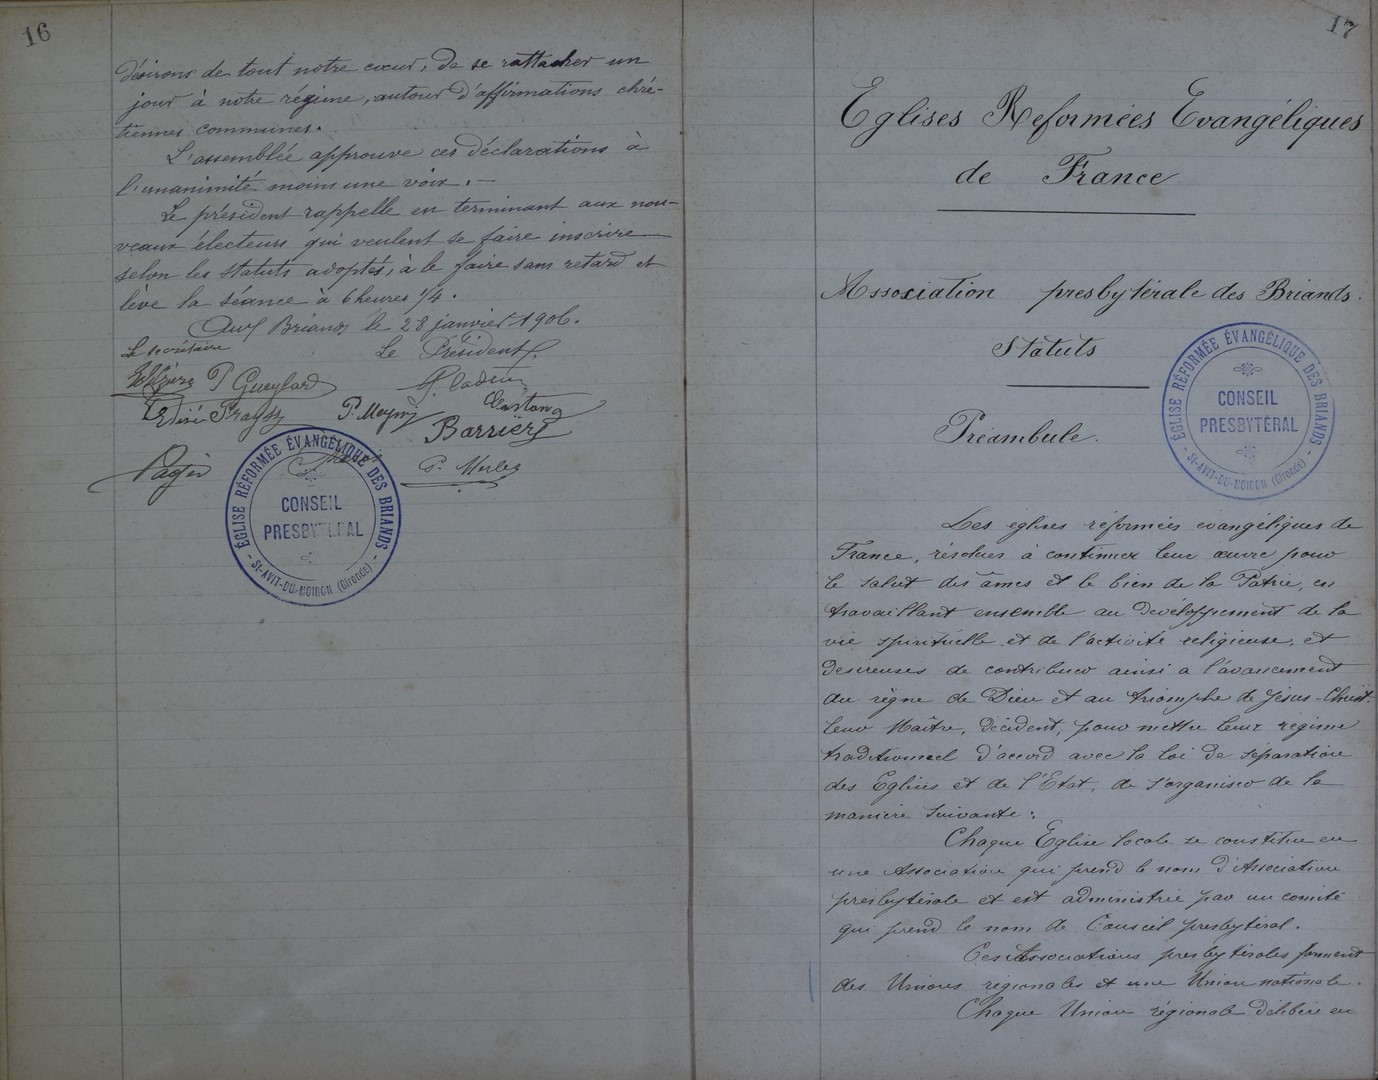 16
désirons de tout notre cœur, de se rattacher un
jour à notre régime, autour d'affirmations chré-
tiennes communes.
L'assemblée approuve ces déclarations à
l'unanimité moins une voix. -
Le président rappelle en terminant aux nou-
veaux électeurs qui veulent se faire inscrire
selon les statuts adoptés, à le faire sans retard et
lève la séance à 6 heures 1/4.
Aux Briands le 28 janvier 1906.
Le secrétaire Le Président
P Gueylard
P. Meyney
Barrière
Pagès P. Merlet
ÉGLISE RÉFORMÉE ÉVANGÉLIQUE DES BRIANDS
CONSEIL
PRESBYTÉRAL
ST-AVIT-DU-MOIRON (Gironde)
17
Eglises Reformées Evangéliques
de France
Association presbytérale des Briands.
Statuts
ÉGLISE RÉFORMÉE ÉVANGÉLIQUE DES BRIANDS
CONSEIL
PRESBYTÉRAL
ST-AVIT-DU-MOIRON (Gironde)
Préambule.
Les églises réformées evangéliques de
France, résolues à continuer leur œuvre pour
le salut des âmes et le bien de la Patrie, en
travaillant ensemble au développement de la
vie spirituelle et de l'activité religieuse, et
desireuses de contribuer ainsi a l'avancement
du règne de Dieu et au triomphe de Jésus-Christ
leur Maître, décident, pour mettre leur régime
traditionnel d'accord avec la loi de séparation
des Eglises et de l'Etat, de s'organiser de la
manière suivante :
Chaque Eglise locale se constitue en
une Association qui prend le nom d'Association
presbytérale et est administrée par un comité
qui prend le nom de Conseil presbytéral.
Ces Associations presbytérales forment
des Unions régionales et une Union nationale.
Chaque Union régionale délibère en